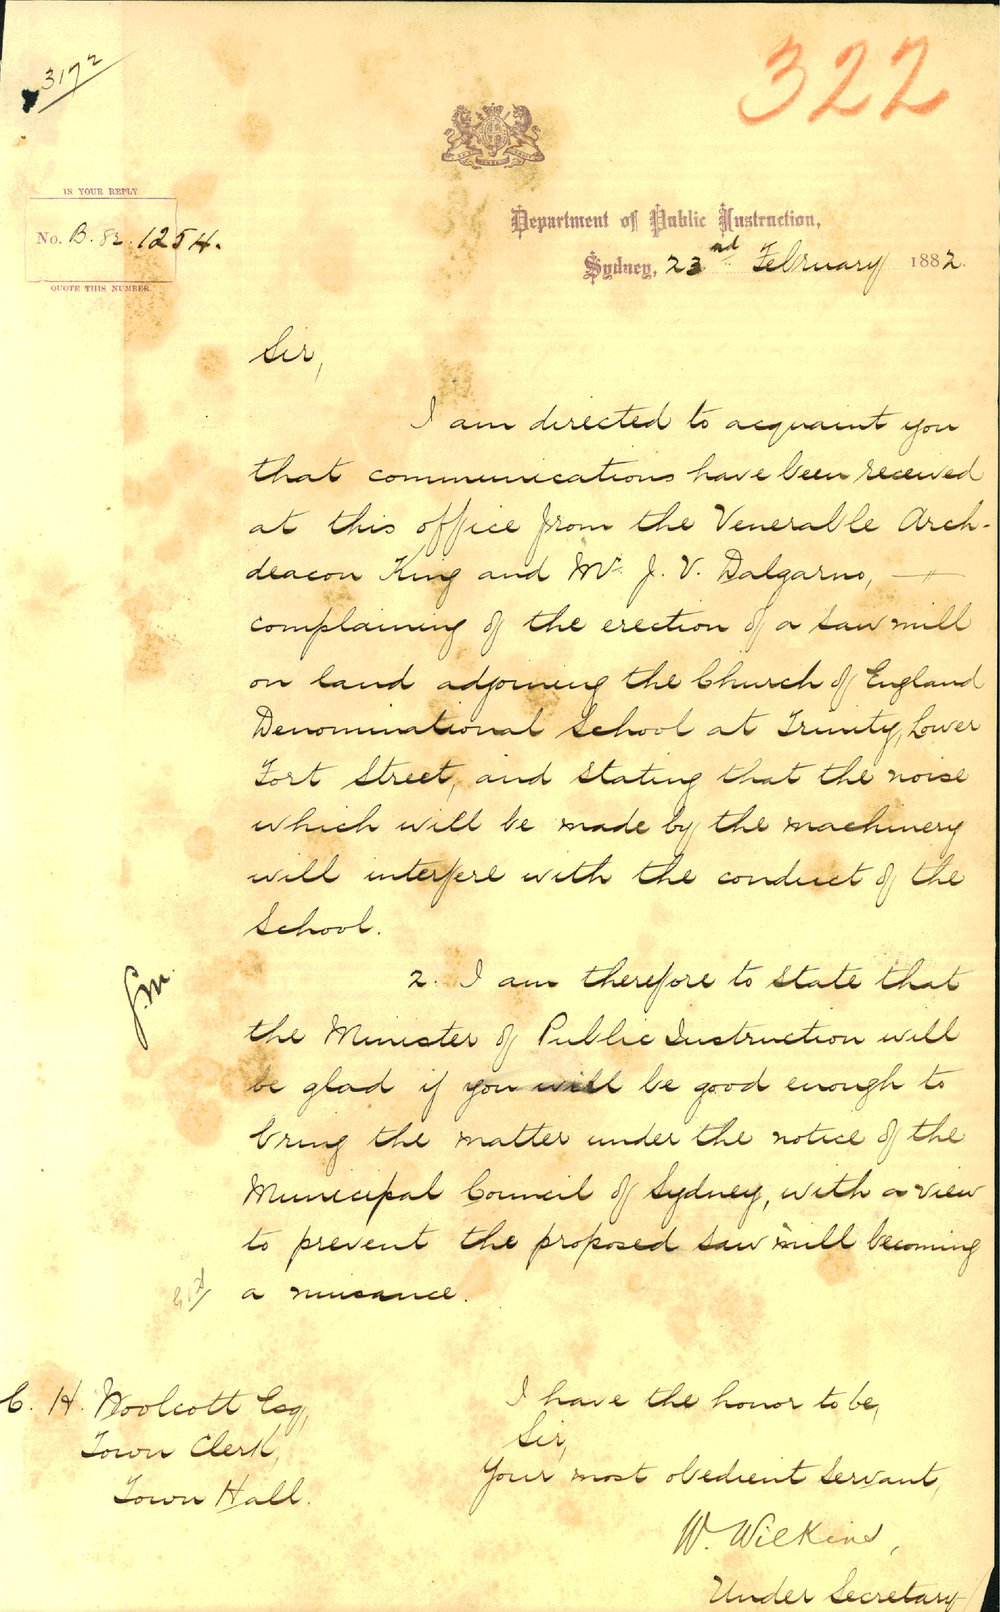 3172
322
IN YOUR REPLY
No. B. 82. 1254.
QUOTE THIS NUMBER.
Department of Public Instruction,
Sydney, 23nd February 1882.
Sir,
I am directed to acquaint you
that communications have been received
at this office from the Venerable Arch-
deacon King and Mr. J. V. Dalgarno,
complaining of the erection of a saw mill
on land adjoining the Church of England
Denominational School at Trinity, Lower
Fort Street, and stating that the noise
which will be made by the machinery
will interfere with the conduct of the
School.
2. I am therefore to state that
the Minister of Public Instruction will
be glad if you will be good enough to
bring the matter under the notice of the
Municipal Council of Sydney, with a view
to prevent the proposed saw mill becoming
a nuisance.
I have the honor to be,
Sir,
Your most obedient Servant,
W. Wilkins,
Under Secretary
C. H. Woolcott Esq,
Town Clerk,
Town Hall.